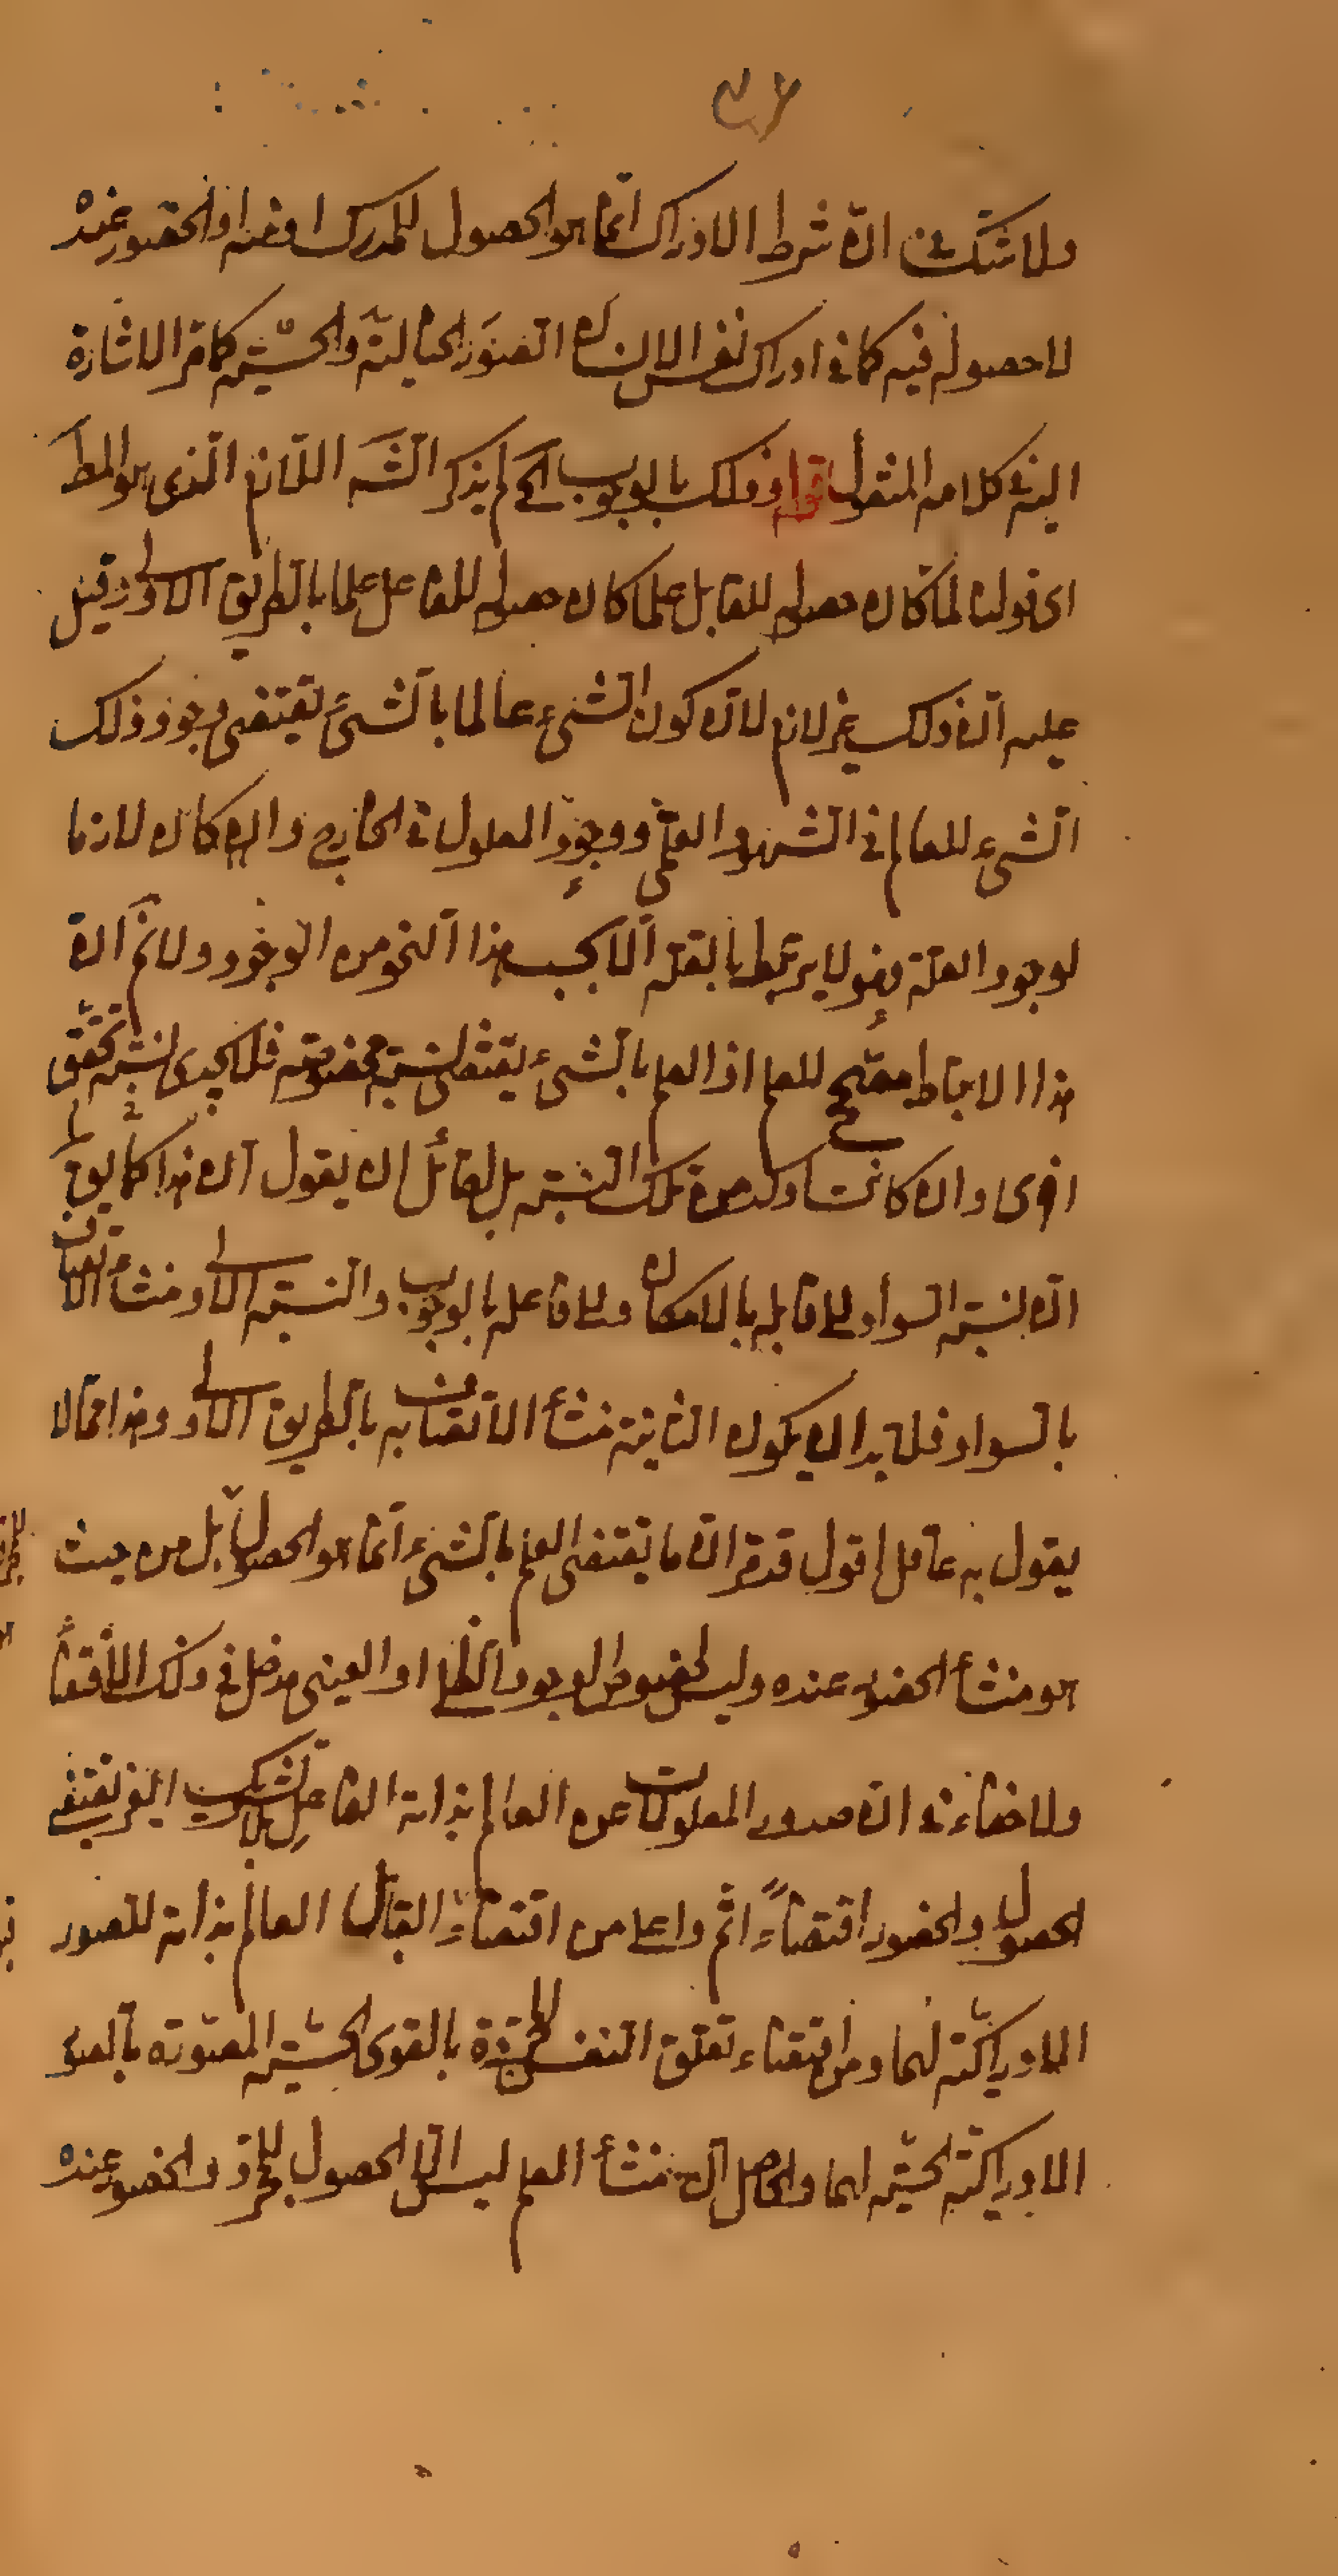 ولا شك في ان شرط الادراك انما هو الحصول للمدرك او فيه او الحضور عنده
لا حصوله فيه كما في ادراك نفس الانسان الصور الخيالية والحسية كما مر الاشارة
اليه في كلامه المنقول قوله وذلك بالوجوب الخ لم يذكر الشه اللازم الذي هو المط
اى قولنا لما كان حصوله للقابل علما كان حصوله للفاعل علما بالطريق الاولى وقيل
عليه ان ذلك غير لازم لان كون الشىء عالما بالشىء يقتضى وجود ذلك
الشىء للعالم في الشهود العلمى ووجود المعلول في الخارج وان كان لازما
لوجود العلة فهو لا يرتبط بالعلة الا بحسب هذا النحو من الوجود ولا نم ان
هذا الارتباط مصحح للعلم اذ العلم بالشىء يقتضى نسبة مخصوصة فلا يجدى نسبة تحقق
اخرى وان كانت اوكد من تلك النسبة بل لقائل ان يقول ان هذا كما يق
ان نسبة السواد الى قابله بالامكان والى فاعله بالوجوب والنسبة الاولى منشأ الاتصاف
بالسواد فلا بد ان يكون الثانية منشأ الاتصاف به بالطريق الاولى وهذا مما لا
يقول به عاقل اقول قد مر ان ما يقتضى العلم بالشىء انما هو الحصول بل من حيث
هو منشأ الحضور عنده وليس لخصوص الوجود الظلى او العينى مدخل في ذلك الاقتضا
ولا خفاء في ان صدور المعلولات عن العالم بذاته الفاعل بلا تشريك الغير يقتضى
الحصول والحضور اقتضاءً اتم واعلى من اقتضاء القابل العالم بذاته للصور
الادراكية لهما ومن اقتضاء تعلق النفس المجردة بالقوى الحسية المصورة بالصور
الادراكية الحسية لهما والحاصل ان منشأ العلم ليس الا الحصول للمجرد والحضور عنده